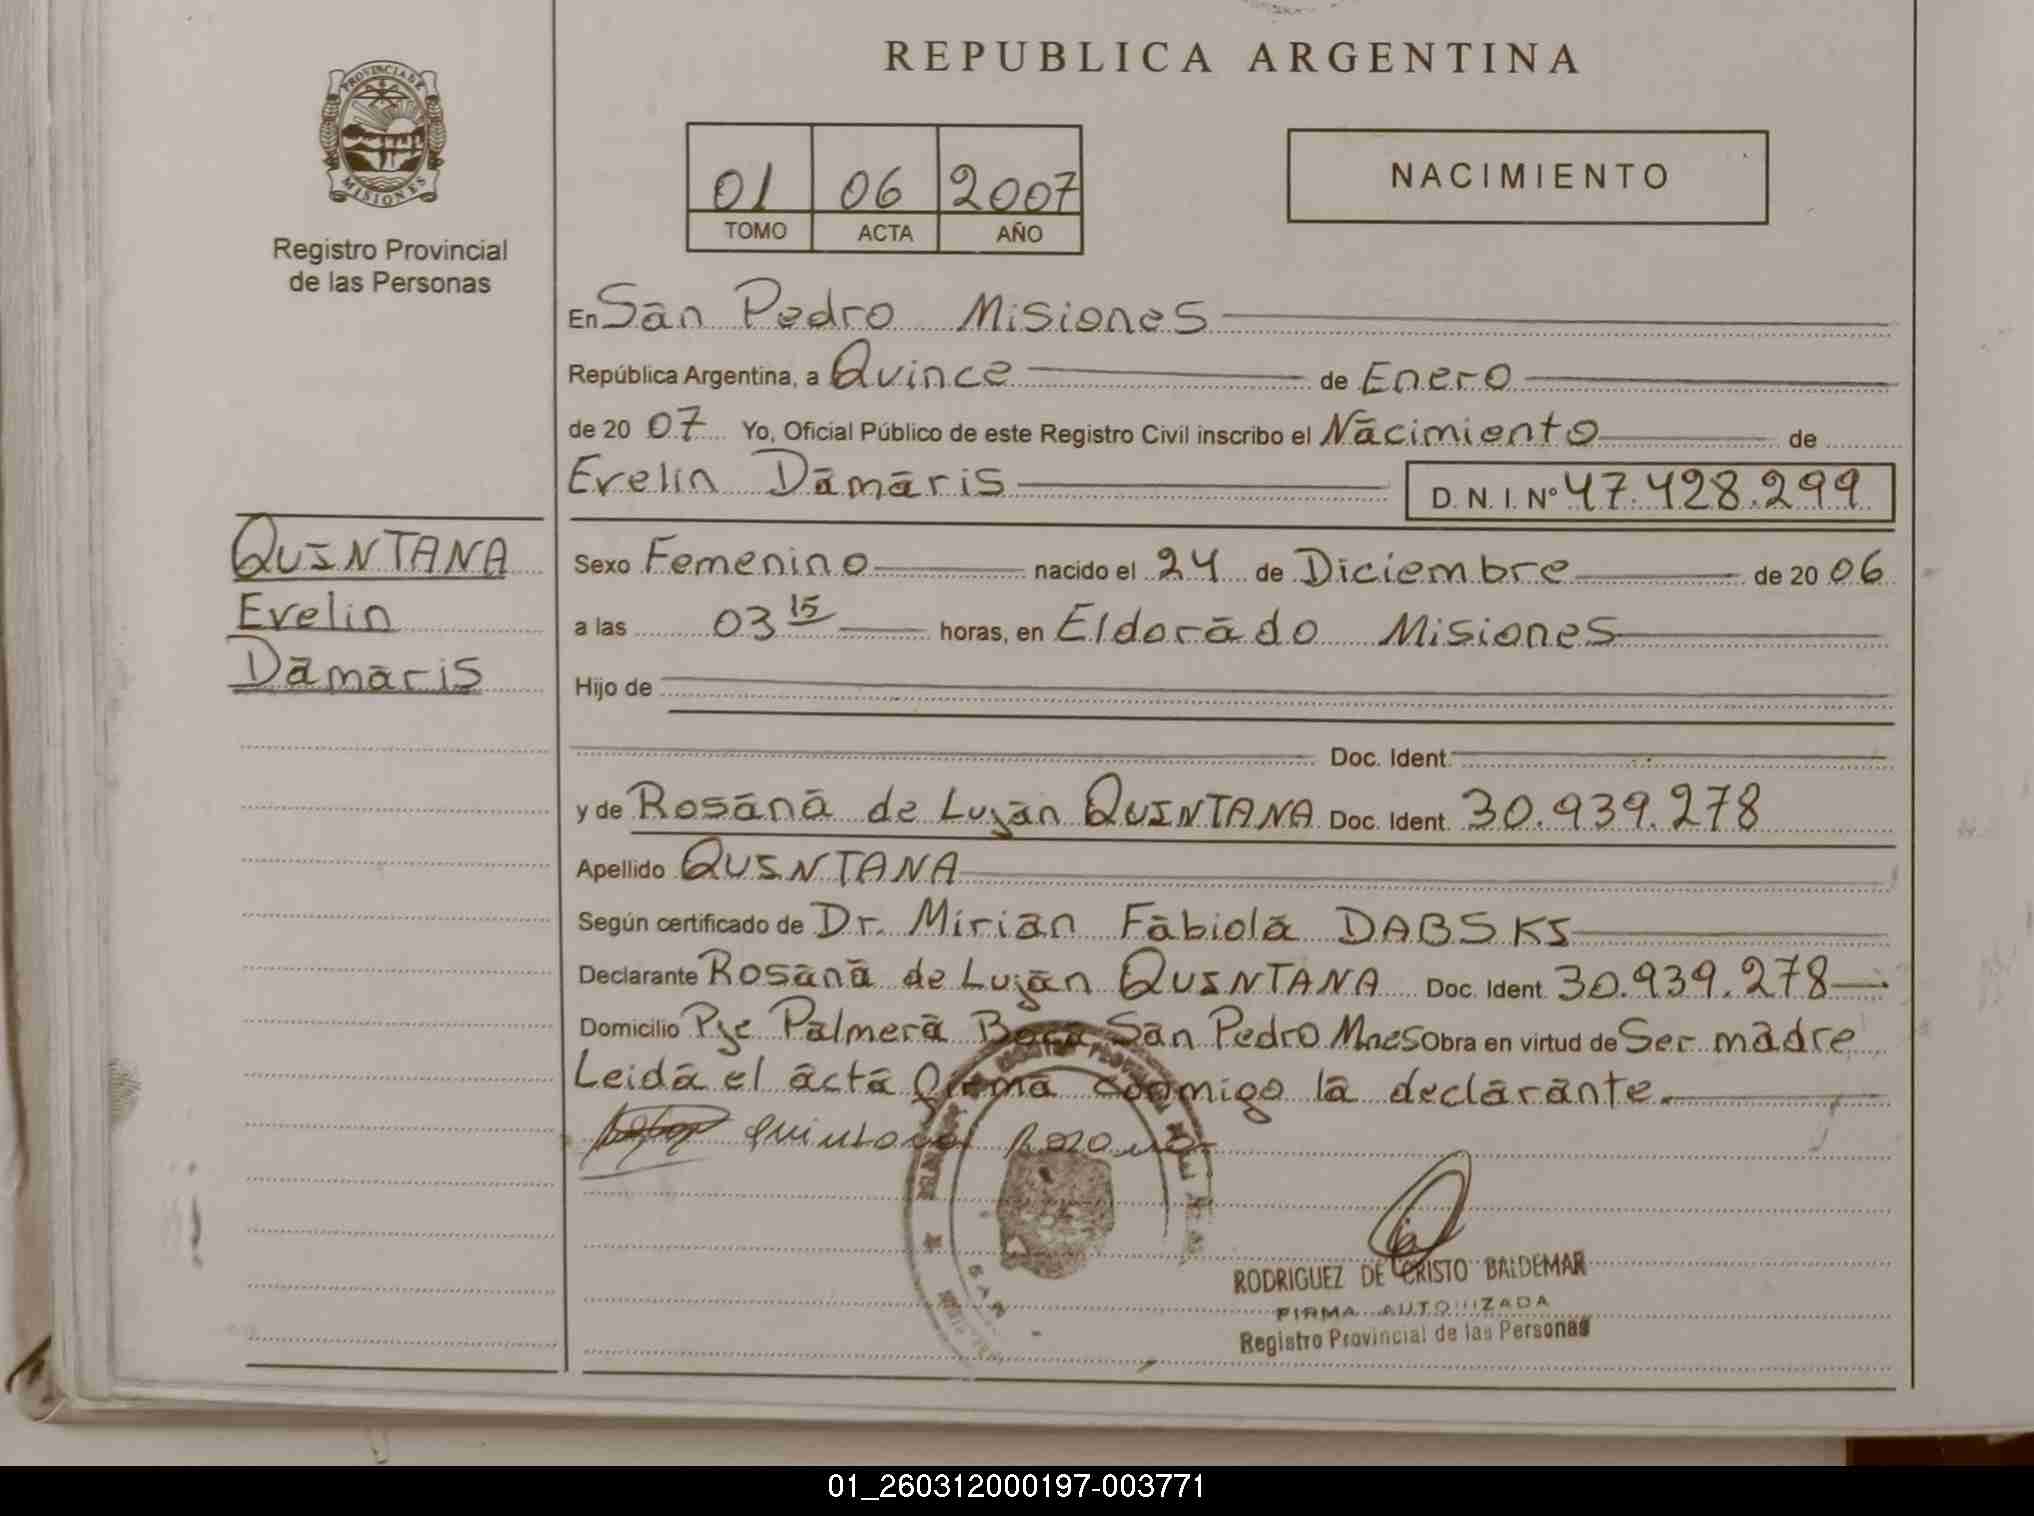 REPUBLICA ARGENTINA
PROVINCIA DE
MISIONES
Registro Provincial
de las Personas
01 06 2007
TOMO ACTA AÑO
NACIMIENTO
En San Pedro Misiones
República Argentina, a Quince de Enero
de 20 07 Yo, Oficial Público de este Registro Civil inscribo el Nacimiento de
Evelin Damaris D. N. I. Nº 47.428.299
QUINTANA
Evelin
Damaris
Sexo Femenino nacido el 24 de Diciembre de 20 06
a las 03 15 horas, en Eldorado Misiones
Hijo de
Doc. Ident.
y de Rosana de Luján QUINTANA Doc. Ident. 30.939.278
Apellido QUINTANA
Según certificado de Dr. Mirian Fabiola DABSKI
Declarante Rosana de Luján QUINTANA Doc. Ident. 30.939.278
Domicilio Pje Palmera Boca San Pedro Mnes Obra en virtud de Ser madre
Leida el acta firma conmigo la declarante.
Quintana Rosana
RODRIGUEZ DE CRISTO BALDEMAR
FIRMA AUTORIZADA
Registro Provincial de las Personas
01_260312000197-003771